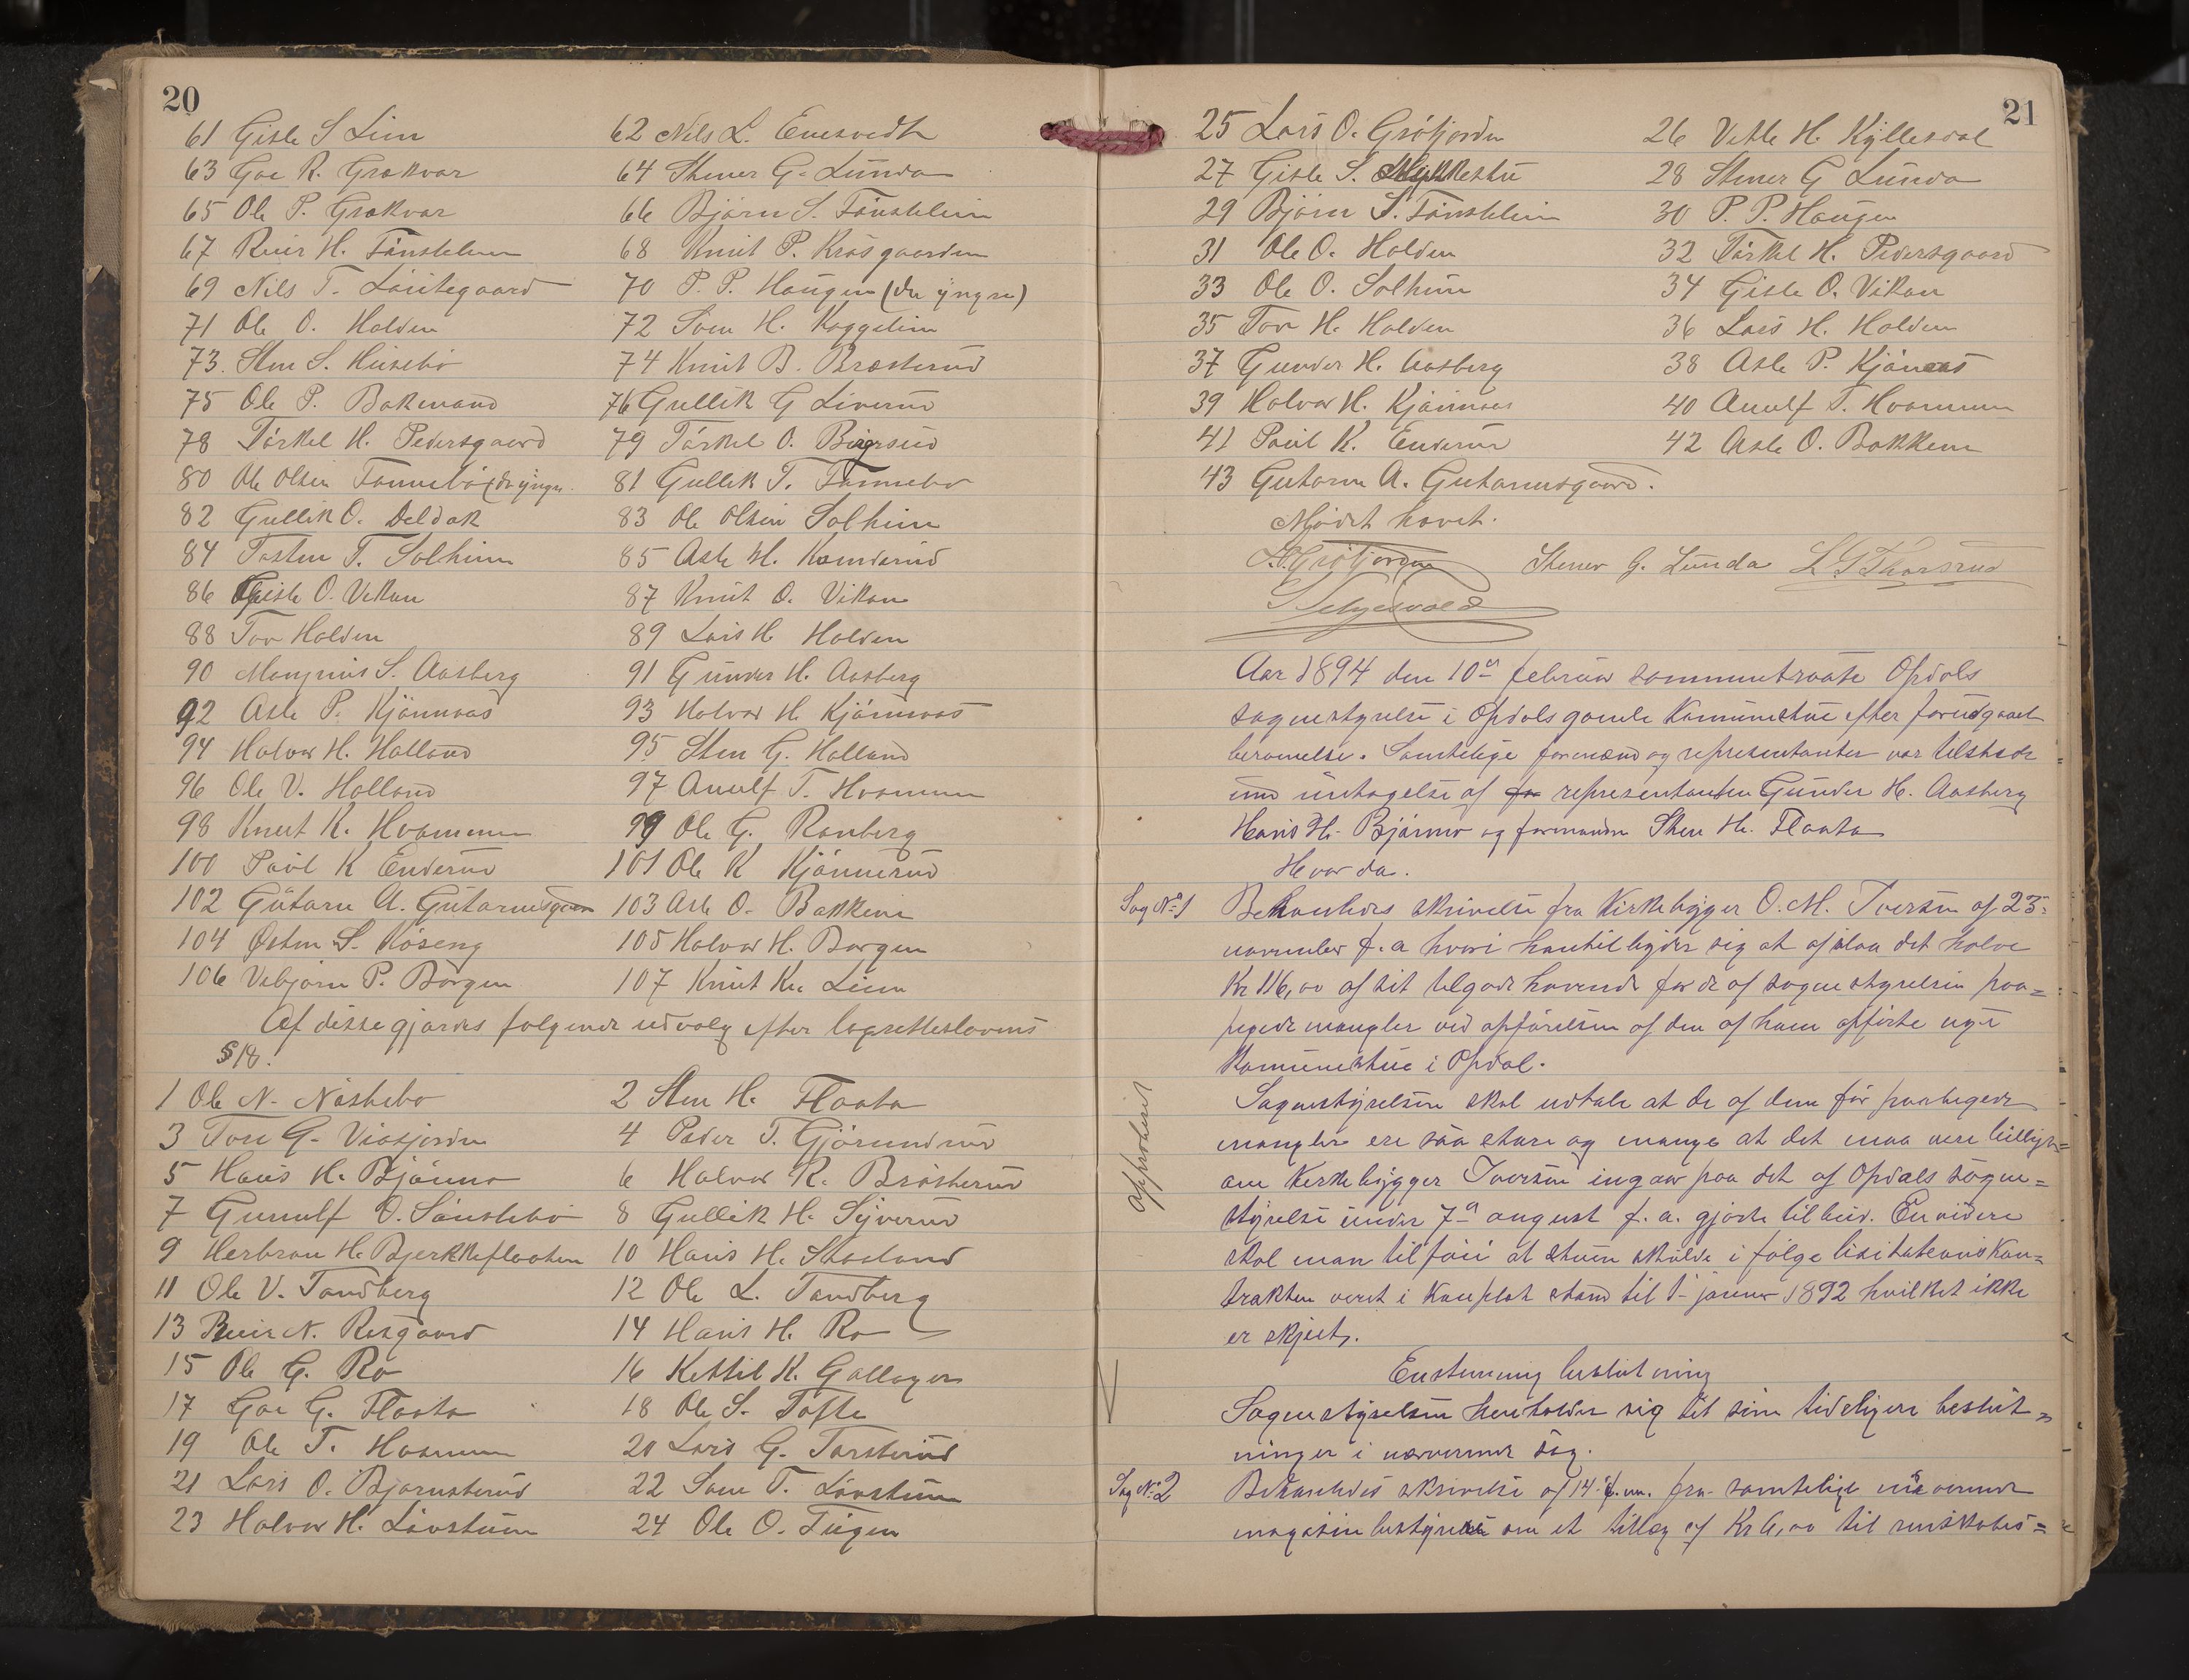 20
61 Gisle S Lien 62 Nils L. Enesvedt
63 Goe R. Grakvar 64 Stener G. Lunda
65 Ole P. Grakvar 66 Bjørn S. Tønsklein
67 Reier H. Tønsklein 68 Knut P. Krosgaarden
69 Nils T. Lauvtegaard 70 P. P. Haugen (den yngre)
71 Ole O. Holden 72 Sven H. Koggelien
73 Sten S. Husebø 74 Knut B. Brøsterud
75 Ole P. Bakerand 76 Gullik G Liverud
78 Tørkel H. Pedersgaard 79 Tørkel O. Bergrud
80 Ole Olsen Tønnebø (den yngre 81 Gullik T. Tønnebø
82 Gullik O. Deldak 83 Ole Olsen Solheim
84 Tosten T. Solheim 85 Asle H. Komderud
86 Gisle O. Vikan 87 Knut O. Vikan
88 Tov Holden 89 Lars H Holden
90 Mangnus S. Aasberg 91 Gunder H. Aasberg
92 Asle P. Kjønnaas 93 Halvor H. Kjønnaas
94 Halvor H. Holland 95 Sten G. Holland
96 Ole V. Holland 97 Anulf T. Hvammen
98 Knut K. Hvammen 99 Ole G. Ranberg
100 Paul K Enderud 101 Ole K Kjønnerud
102 Gutorm A. Gutormsgaard 103 Asle O. Bakken
104 Østen S. Køseng 105 Halvor H. Borgen
106 Vebjørn P. Borgen 107 Knut K. Lien
Af disse gjordes følgende udvalg efter lagretteslovens
§ 18.
1 Ole N. Nørstebø 2 Sten H. Flaata
3 Tore G. Viosjorden 4 Peder T. Gjørundrud
5 Hans H. Bjønno 6 Halvor R. Brøsterud
7 Gunulf O. Sønstebø 8 Gullik H. Syverud
9 Herbran H. Bjerkkeflaaten 10 Hans H. Skaaland
11 Ole V. Tandberg 12 Ole L. Tandberg
13 Reier N. Risgaard 14 Hans H. Ro
15 Ole G. Ro 16 Kettil K. Gallager
17 Goe G. Flaata 18 Ole S. Tøfte
19 Ole T. Hvammen 20 Lars G. Torsterud
21 Lars O. Bjørnsterud 22 Sven T. Løvstuen
23 Halvor H. Løvstuen 24 Ole O. Tugen
21
25 Lars O. Grøtjorden 26 Vetle H. Kyllesdal
27 Gisle S. Mykkestue 28 Stener G Lunda
29 Bjørn S. Tønsklein 30 P. P. Haugen
31 Ole O. Holden 32 Tørkel H. Pedersgaard
33 Ole O. Solheim 34 Gisle O. Vikan
35 Tov H. Holden 36 Lars H. Holden
37 Gunder H. Aasberg 38 Asle P. Kjønaas
39 Halvor H. Kjønnaas 40 Anulf T. Hvammen
41 Paul K. Enderud 42 Asle O. Bakken
43 Gutorm A. Gutormsgaard.
Mødet hævet.
L.O. Grøtjorden Stener G. Lunda L G Thorsrud
Aar 1894 den 10de februar sammentraate Opdals
sognestyrelse i Opdals gamle komunestue efter forudgaaet
beramelse. Samtelige formænd og representanter var tilstede
und untagelse af representanten Gunder H. Aasberg
Hans H. Bjønno og formanden Sten H. Flaata
Hvor da.
Sag No 1 Behanledes skrivelse fra Kirkebygger O. M. Iversen af 23
november f. a hvori han tilbyder sig at afslaa det halve
Kr 116,00 af sit tilgode havende for de af sognestyrelsen paa=
pegede mangler ved opførelsen af den af ham opførte nye
komunestue i Opdal.
approberet
Sognestyrelsen skal udtale at de af dem før paapegede
mangler ere saa store og mange at det maa vere billigt=
om Kirkebygger Iversen ingaar paa det af Opdals sogne=
styrelse under 7de august f. a. gjorte tilbud. En videre
skal man tilføie at stuen skulde i følge lisitationskon=
trakten veret i komplet stand til 1 januar 1892 hvilket ikke
er skjeet.
Enstemmig beslutning
Sognestyrelsen henholder sig til sine tideligere beslut=
ninger i nærværende sag.
Sag No 2 Behanledes skrivelse af 14 f. m. fra samtelige nuværende
magasinbestyrelse om et tillæg af Kr 6,00 til rendskabs=